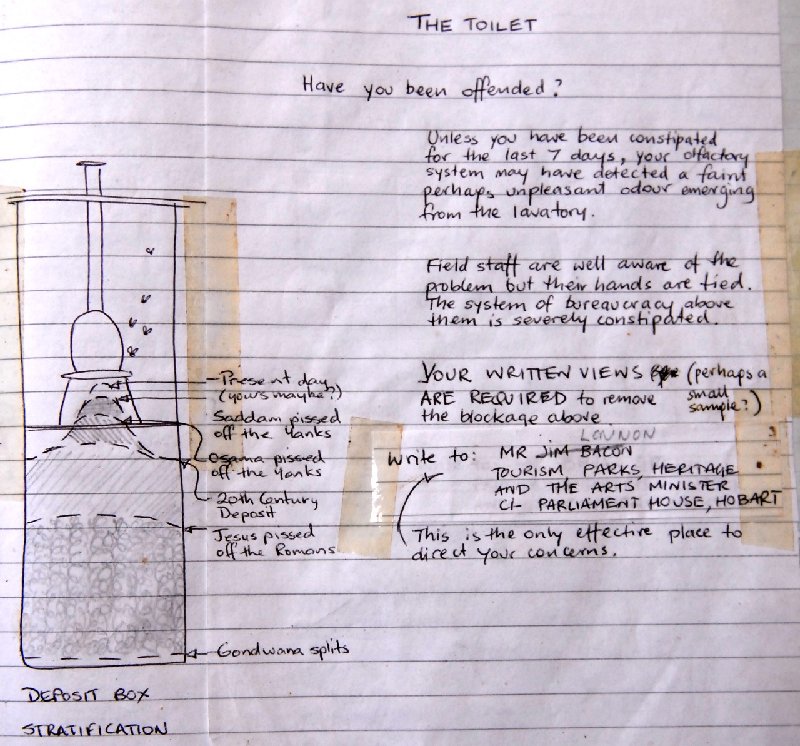 THE TOILET
Have you been offended?
Unless you have been constipated
for the last 7 days, your olfactory
system may have detected a faint
perhaps unpleasant odour emerging
from the lavatory.
Field staff are well aware of the
problem but their hands are tied.
The system of bureaucracy above
them is severely constipated.
YOUR WRITTEN VIEWS (perhaps a
ARE REQUIRED to remove small
the blockage above sample?)
LENNON
Write to: MR JIM BACON
TOURISM PARKS, HERITAGE
AND THE ARTS MINISTER
C/- PARLIAMENT HOUSE, HOBART
This is the only effective place to
direct your concerns.
Present day
(yours maybe?)
Saddam pissed
off the Yanks
Osama pissed
off the Yanks
20th Century
Deposit
Jesus pissed
off the Romans
Gondwana splits
DEPOSIT BOX
STRATIFICATION